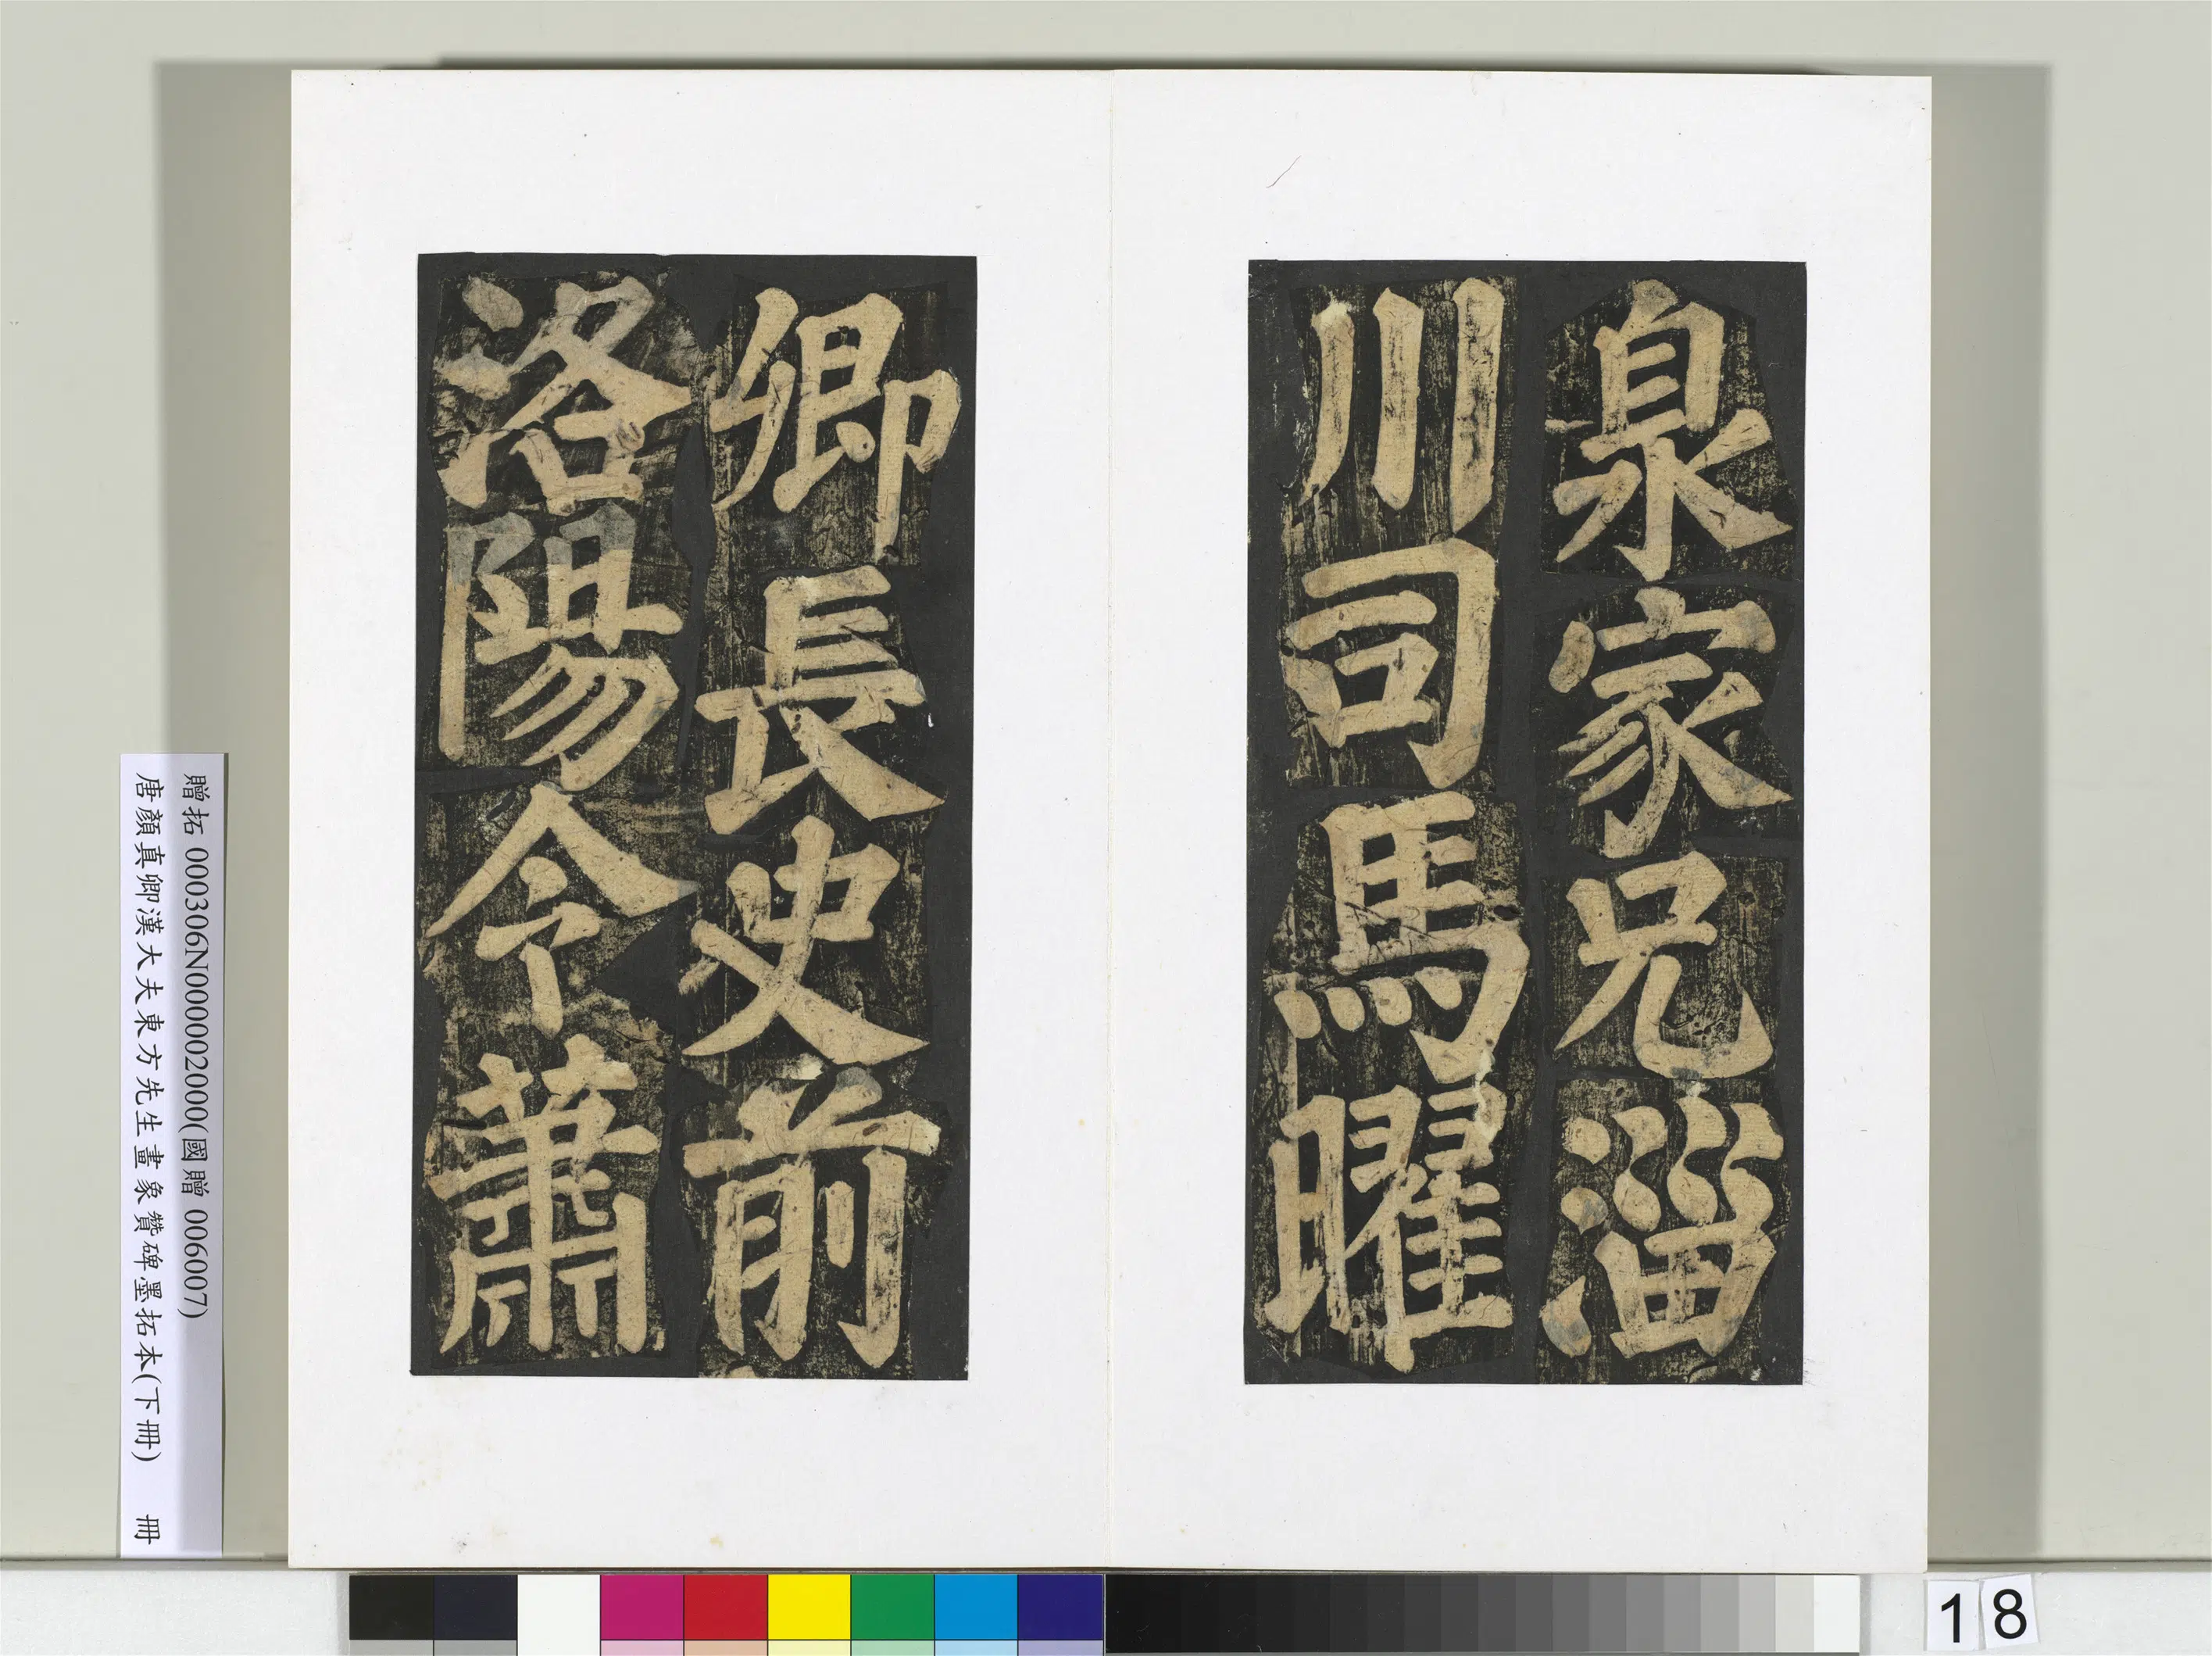 泉家兄淄
川司馬曜
卿長史前
洛陽令蕭
贈拓 000306N000002000(國贈 006007)
唐顏真卿漢大夫東方先生畫象贊碑墨拓本(下冊) 冊
18